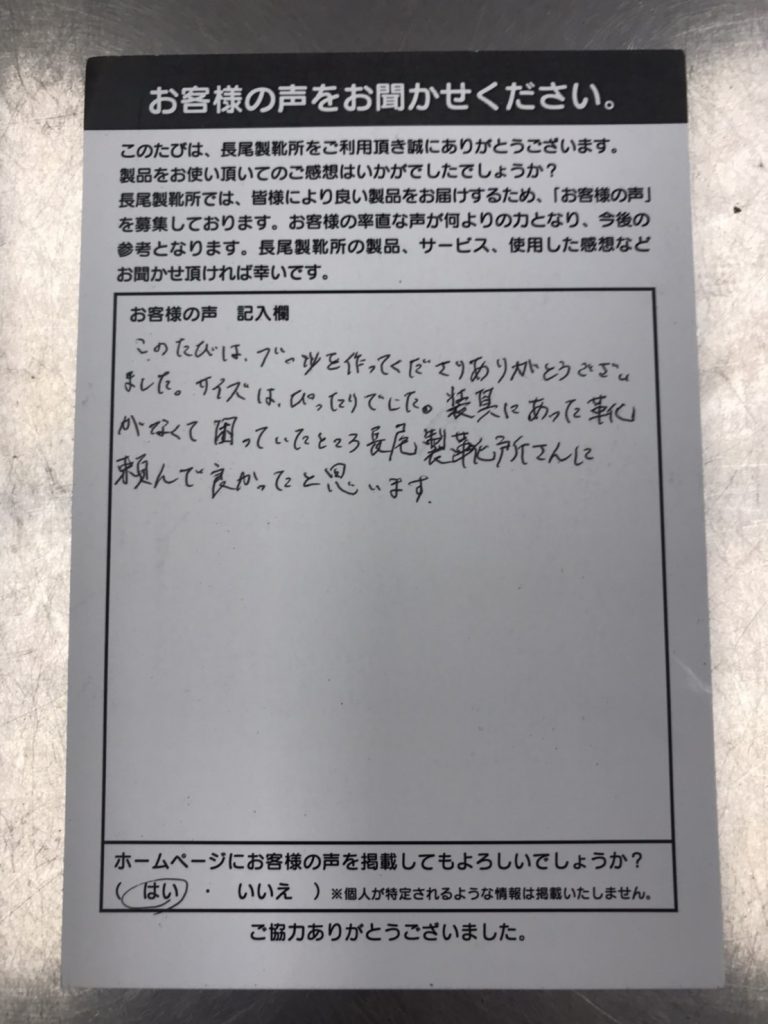 お客様の声をお聞かせください。
このたびは、長尾製靴所をご利用頂き誠にありがとうございます。
製品をお使い頂いてのご感想はいかがでしたでしょうか？
長尾製靴所では、皆様により良い製品をお届けするため、「お客様の声」
を募集しております。お客様の率直な声が何よりの力となり、今後の
参考となります。長尾製靴所の製品、サービス、使用した感想など
お聞かせ頂ければ幸いです。
お客様の声　記入欄
このたびは、ブーツを作ってくださりありがとうござい
ました。サイズは、ぴったりでした。装具にあった靴
がなくて困っていたところ長尾製靴所さんに
頼んで良かったと思います.
ホームページにお客様の声を掲載してもよろしいでしょうか？
（　はい　・　いいえ　）※個人が特定されるような情報は掲載いたしません。
ご協力ありがとうございました。